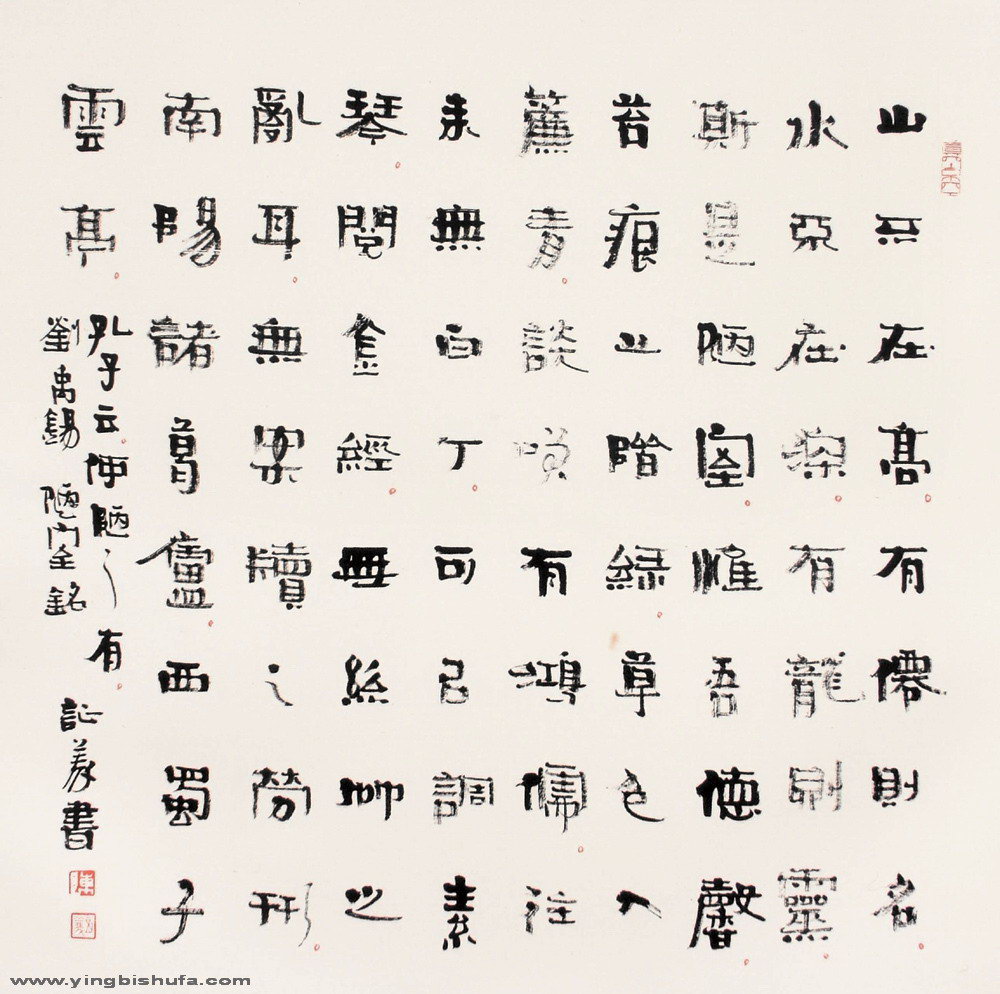 山不在高有僊則名
水不在深有龍則靈
斯是陋室惟吾德馨
苔痕上階綠草色入
簾青談咲有鴻儒往
來無白丁可以調素
琴閱金經無絲竹之
亂耳無案牘之勞形
南陽諸葛廬西蜀子
雲亭
孔子云何陋之有
劉禹錫陋室銘
証義書
www.yingbishufa.com